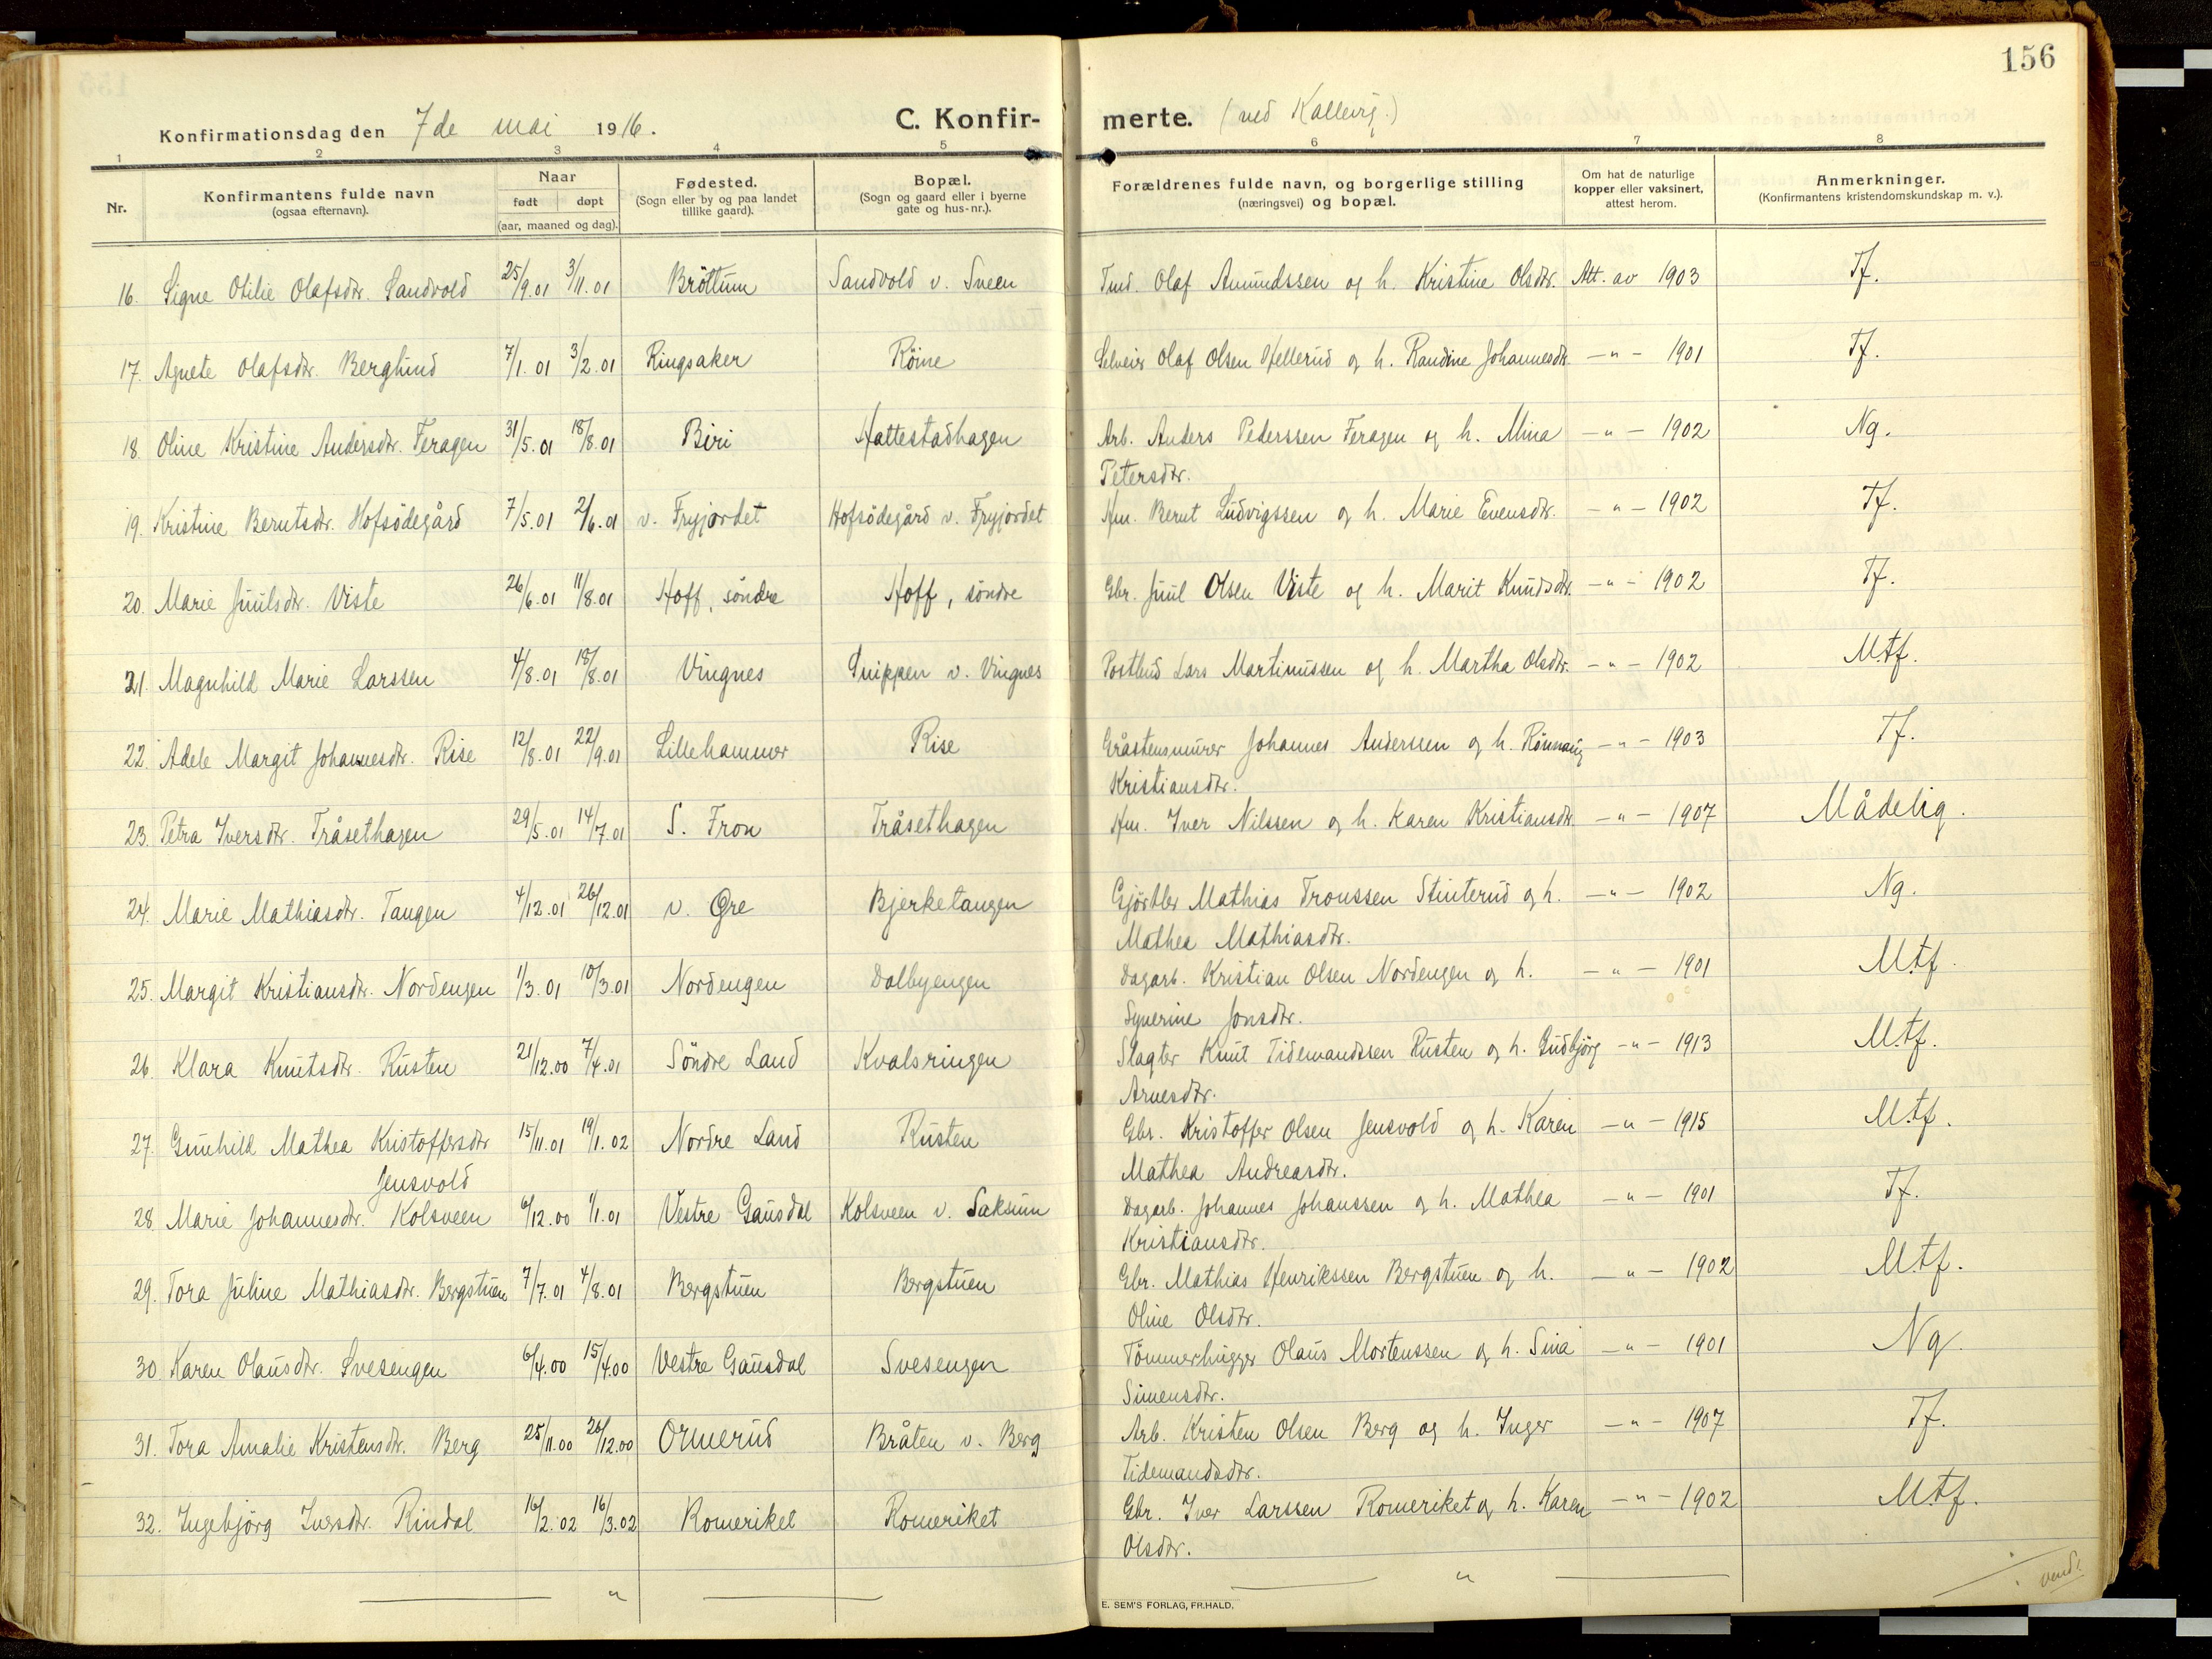 156
Konfirmationsdag den 7de mai 1916.
C. Konfir-merte. (ved Kallevig.)
1 2 3 4 5 6 7 8
Nr.
Konfirmantens fulde navn
(ogsaa efternavn).
Naar
født døpt
(aar, maaned og dag).
Fødested.
(Sogn eller by og paa landet
tillike gaard).
Bopæl.
(Sogn og gaard eller i byerne
gate og hus-nr.).
Forældrenes fulde navn, og borgerlige stilling
(næringsvei) og bopæl.
Om hat de naturlige
kopper eller vaksinert,
attest herom.
Anmerkninger.
(Konfirmantens kristendomskundskap m. v.).
16. Signe Otilie Olafsdtr. Sandvold 25/9.01 3/11.01 Bröttum Sandvold v. Sveen Tmd. Olaf Amundssen og h. Kristine Olsdtr. Att. av 1903 Tf.
17. Agnete Olafsdtr. Berglund 7/1.01 3/2.01 Ringsaker Röine Selveier Olaf Olsen Hellerud og h. Randine Johannesdtr. -"- 1901 Tf.
18. Oline Kristine Andersdtr. Feragen 31/5.01 18/8.01 Biri Hattestadhagen Arb. Anders Pederssen Feragen og h. Mina -"- 1902 Ng.
Petersdtr.
19. Kristine Berntsdtr. Hofsödegård 7/5.01 2/6.01 v. Fryjordet Hofsödegård v. Fryjordet Hm. Bernt Ludvigssen og h. Marie Evensdtr. -"- 1902 Tf.
20. Marie Juulsdtr. Viste 26/6.01 11/8.01 Hoff, söndre Hoff, söndre Gbr. Juul Olsen Viste og h. Marit Knudsdtr. -"- 1902 Tf.
21. Magnhild Marie Larssen 4/8.01 18/8.01 Vingnes Snippen v. Vingnes Postbud Lars Martinussen og h. Martha Olsdtr. -"- 1902 M.tf.
22. Adele Margit Johannesdtr. Rise 12/8.01 22/9.01 Lillehammer Rise Gråstensmurer Johannes Anderssen og h. Rönnaug -"- 1903 Tf.
Kristiansdtr.
23. Petra Iversdtr. Tråsethagen 29/5.01 14/7.01 S. Fron Tråsethagen Hm. Iver Nilssen og h. Karen Kristiansdtr. -"- 1907 Mådelig.
24. Marie Mathiasdtr. Tangen 4/12.01 26/12.01 v. Øre Bjerketangen Gjörtler Mathias Tronssen Stinterud og h. -"- 1902 Ng.
Mathea Mathiasdtr.
25. Margit Kristiansdtr. Nordengen 1/3.01 10/3.01 Nordengen Dalbyengen Dagarb. Kristian Olsen Nordengen og h. -"- 1901 M.tf.
Synerine Jonsdtr.
26. Klara Knutsdtr. Rusten 21/12.00 7/4.01 Söndre Land Kvalsringen Slagter Knut Tidemandssen Rusten og h. Gudbjörg -"- 1913 M.tf.
Arnesdtr.
27. Gunhild Mathea Kristoffersdtr 15/11.01 19/1.02 Nordre Land Rusten Gbr. Kristoffer Olsen Jensvold og h. Karen -"- 1915 M.tf.
Jensvold Mathea Andreasdtr.
28. Marie Johannesdtr. Kolsveen 6/12.00 1/1.01 Vestre Gausdal Kolsveen v. Saksum Dagarb. Johannes Johanssen og h. Mathea -"- 1901 Tf.
Kristiansdtr.
29. Tora Juline Mathiasdtr. Bergstuen 7/7.01 4/8.01 Bergstuen Bergstuen Gbr. Mathias Henrikssen Bergstuen og h. -"- 1902 M.tf.
Oline Olsdtr.
30. Karen Olausdtr. Svesengen 6/4.00 15/4.00 Vestre Gausdal Svesengen Tömmerhugger Olaus Mortenssen og h. Sina -"- 1901 Ng.
Simensdtr.
31. Tora Amalie Kristensdtr. Berg 25/11.00 26/12.00 Ormerud Bråten v. Berg Arb. Kristen Olsen Berg og h. Inger -"- 1907 Tf.
Tidemandsdtr.
32. Ingebjörg Iversdtr. Rindal 16/2.02 16/3.02 Romeriket Romeriket Gbr. Iver Larssen Romeriket og h. Karen -"- 1902 M.tf.
Olsdtr.
— " — — " —
vend!
E. SEM'S FORLAG, FR.HALD.